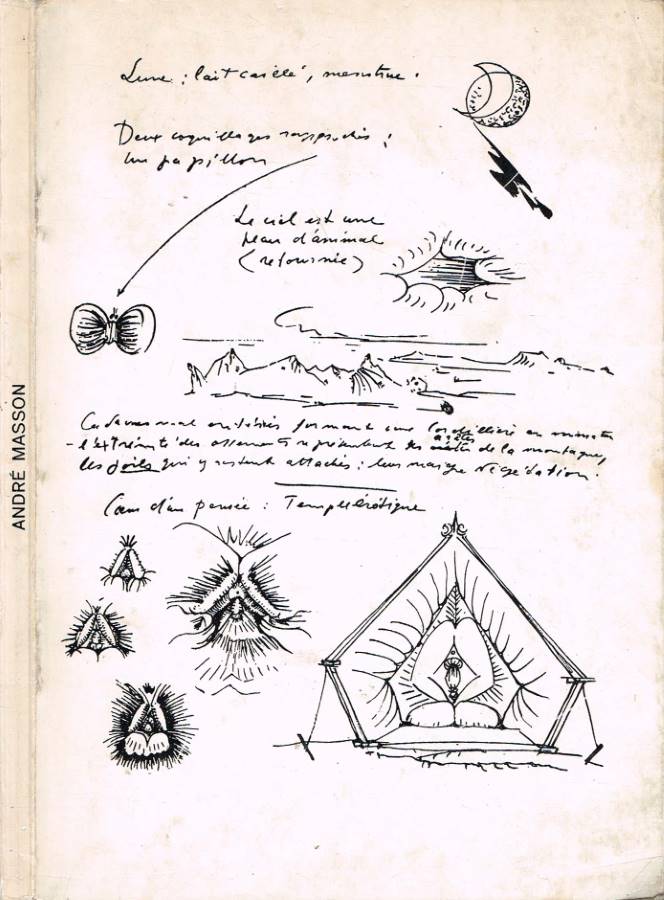 ANDRÉ MASSON
Lune : lait caillé, menstrue.
Deux coquillages rapprochés :
un papillon
Le ciel est une
peau d'animal
(retournée)
formant une cordillère en
l'extrémité des ossements représentent les de la montagne,
les poils qui y restent attachés : leur maigre végétation.
Cœur d'une pensée : Temple érotique